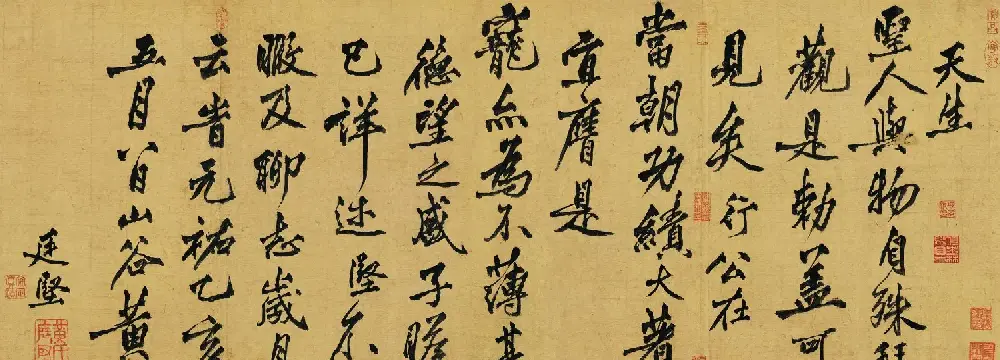 天生
聖人與物自殊
觀是勅蓋可
見矣行公在
當朝功績大著
宜膺是
寵亦為不薄其
德望之盛子瞻
已詳述堅不
暇及聊志歲月
云旹元祐乙亥
五月八日山谷黃
廷堅